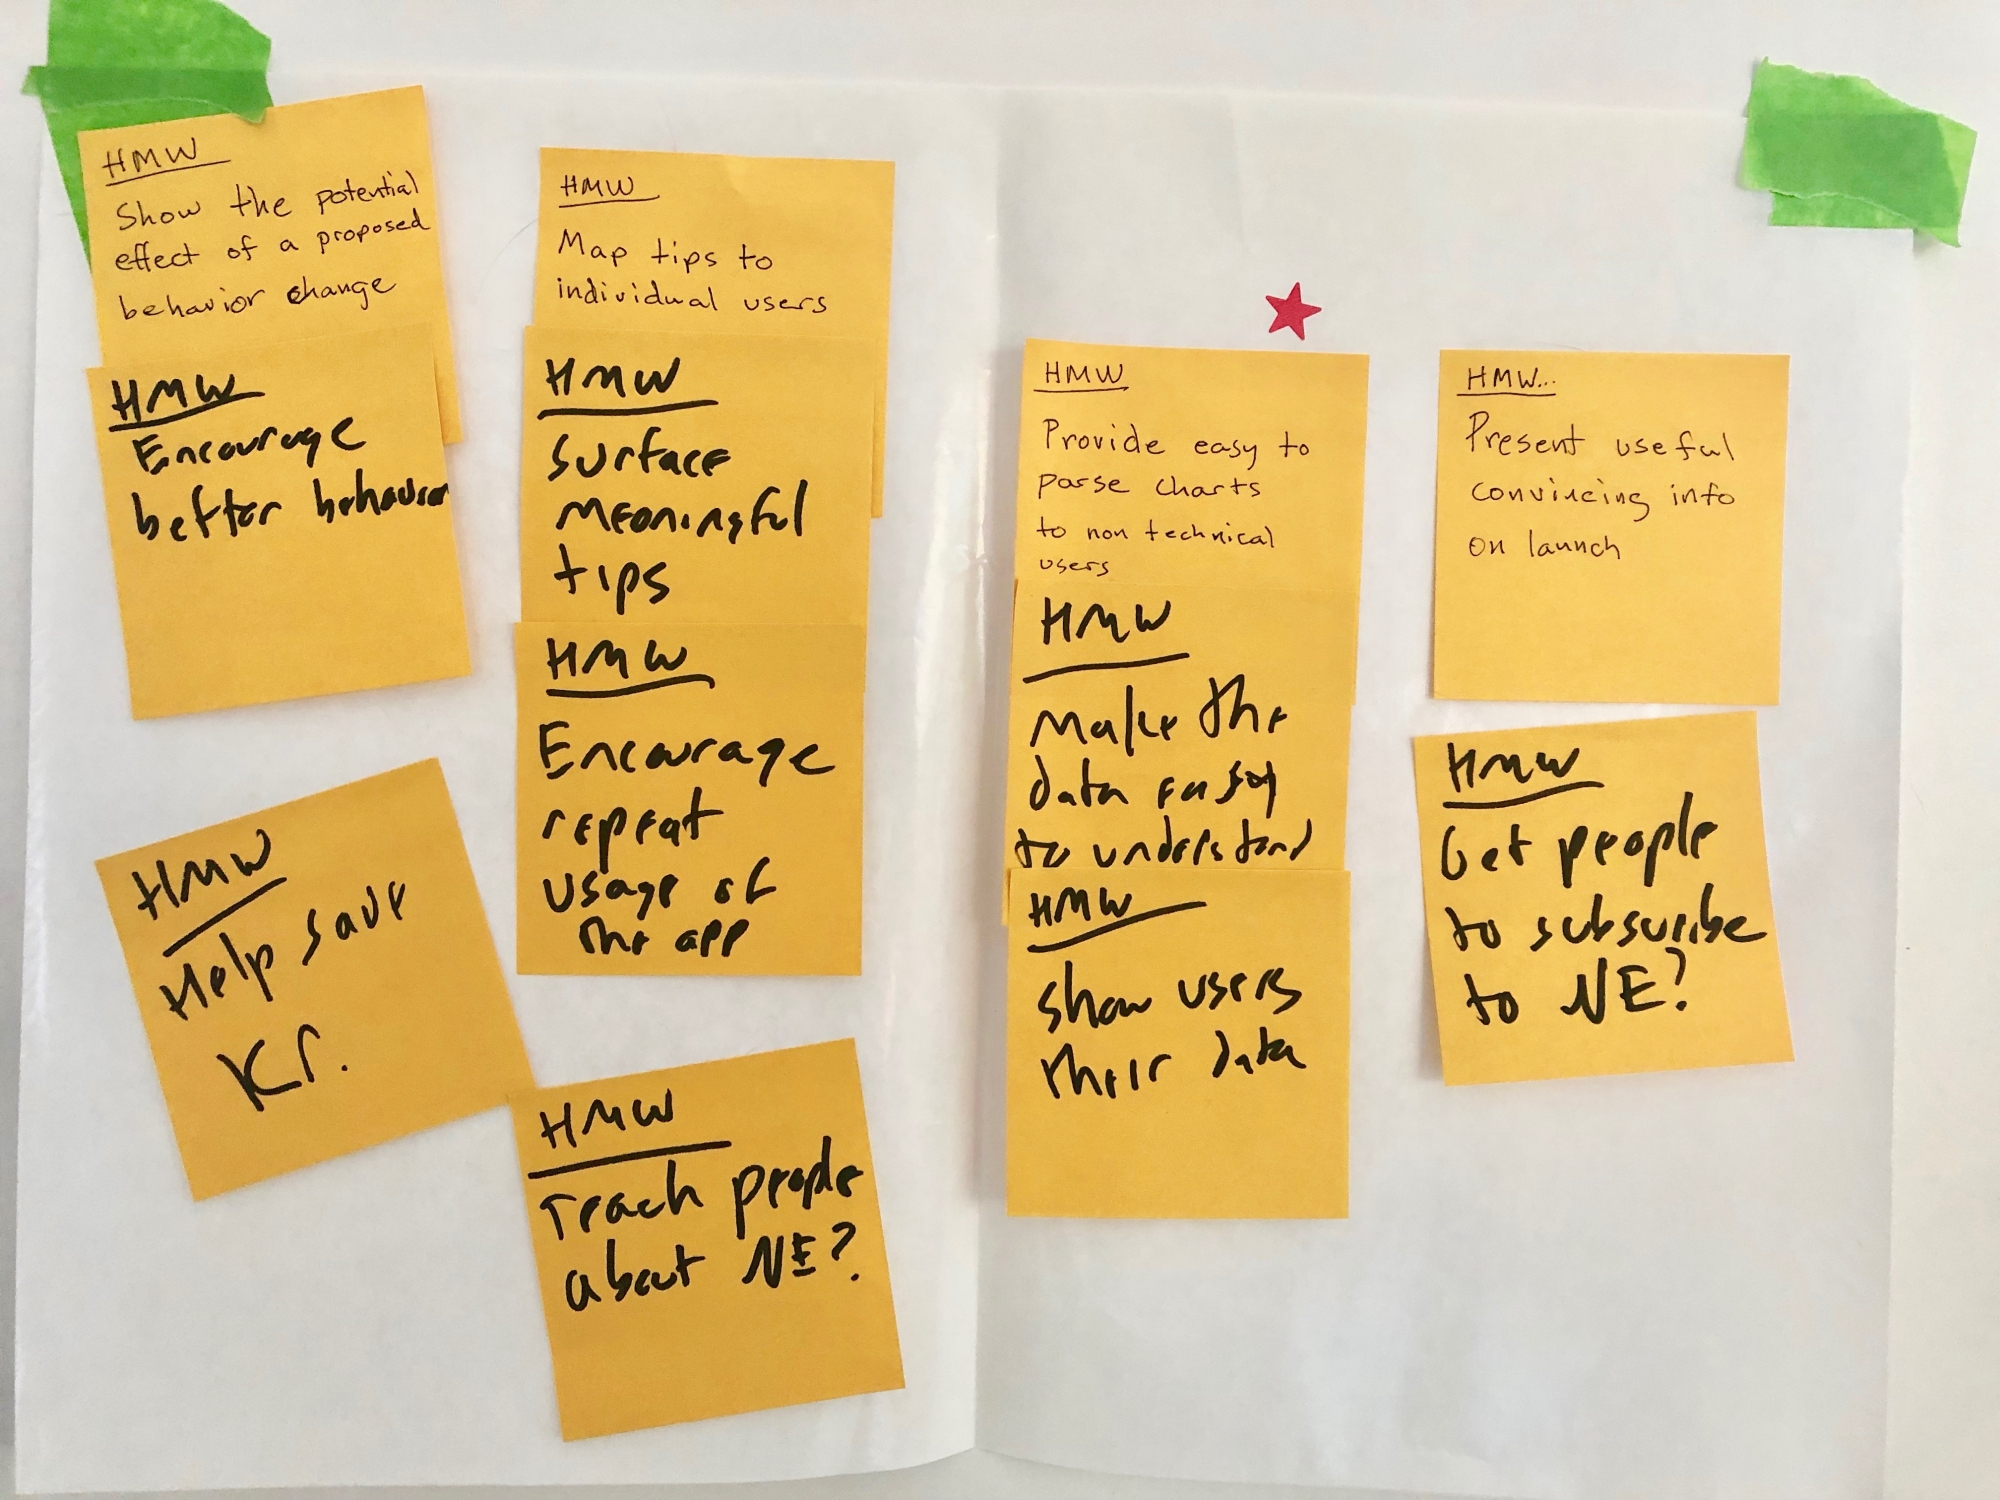 HMW
Show the potential
effect of a proposed
behavior change
HMW
Encourage
better behavior
HMW
Help save
Kr.
HMW
Map tips to
individual users
HMW
Surface
meaningful
tips
HMW
Encourage
repeat
usage of
the app
HMW
Teach people
about NE?
HMW
Provide easy to
parse charts
to non technical
users
HMW
Make the
data easy
to understand
HMW
Show users
their data
HMW...
Present useful
convincing info
on launch
HMW
Get people
to subscribe
to NE?